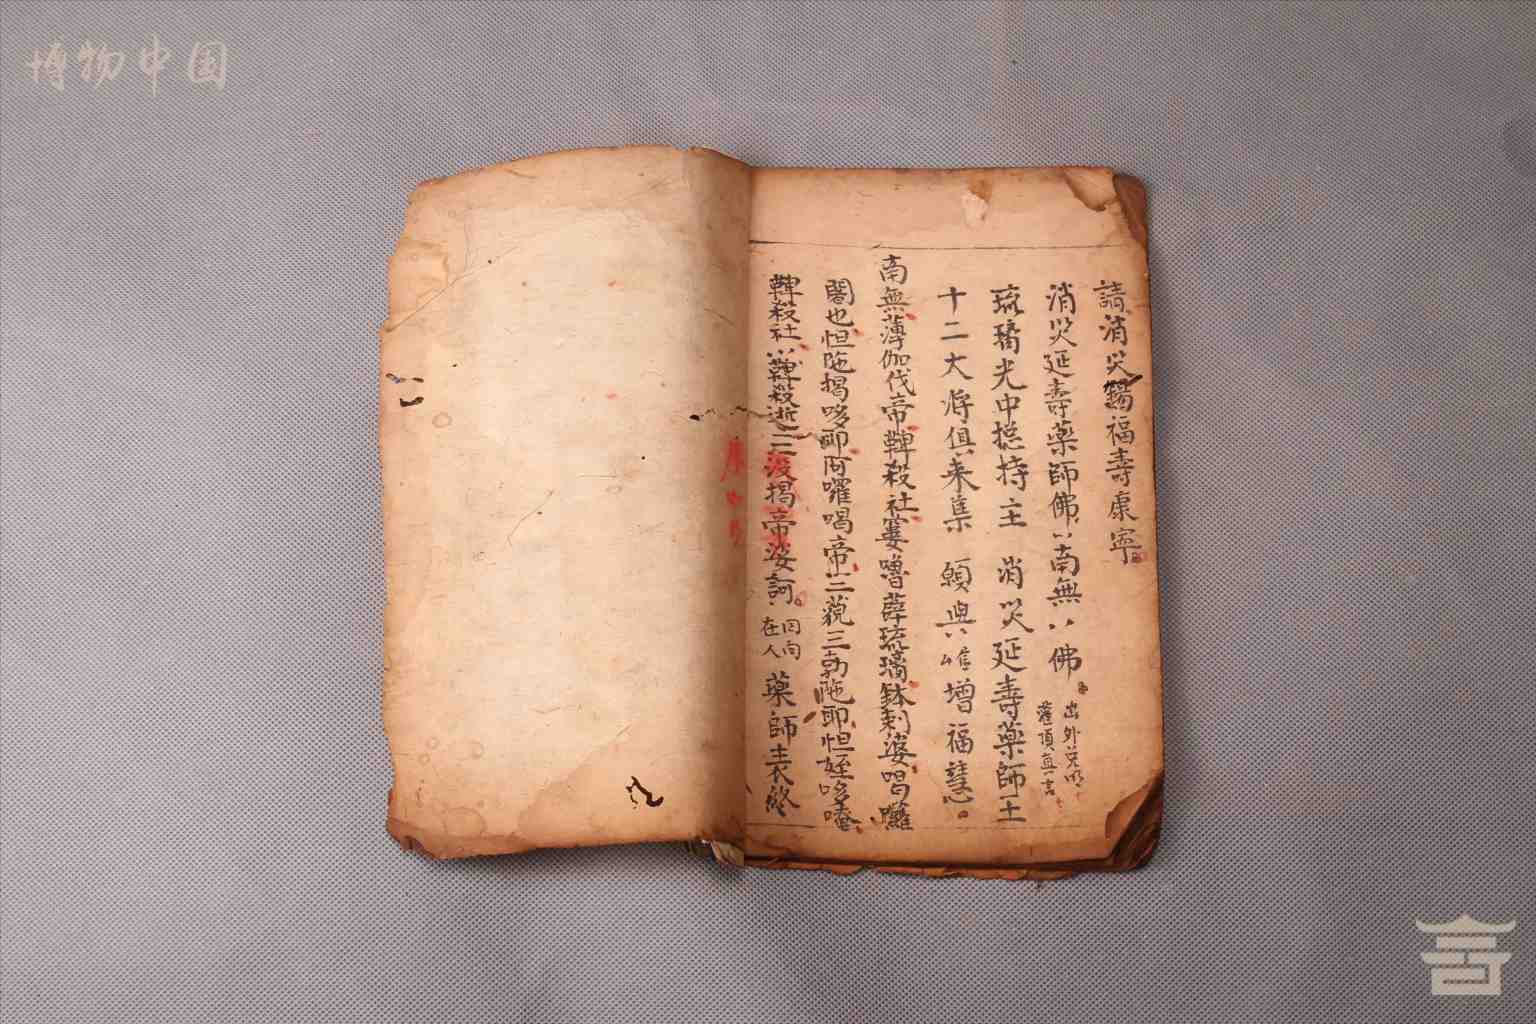 博物中国
請消災錫福壽康寧
消災延壽藥師佛〻南無〻佛
出外
灌頂真言
琉璃光中捴持主 消災延壽藥師土
十二大将俱来集 願與〻增福慧
南無薄伽伐帝鞞殺社窶嚕薛琉璃鉢剌婆喝囉
闍也怛陁揭哆耶阿囉喝帝三藐三勃陁耶怛姪哆唵
鞞殺社〻鞞殺逝三没揭帝娑訶
回向
在人
藥師表終